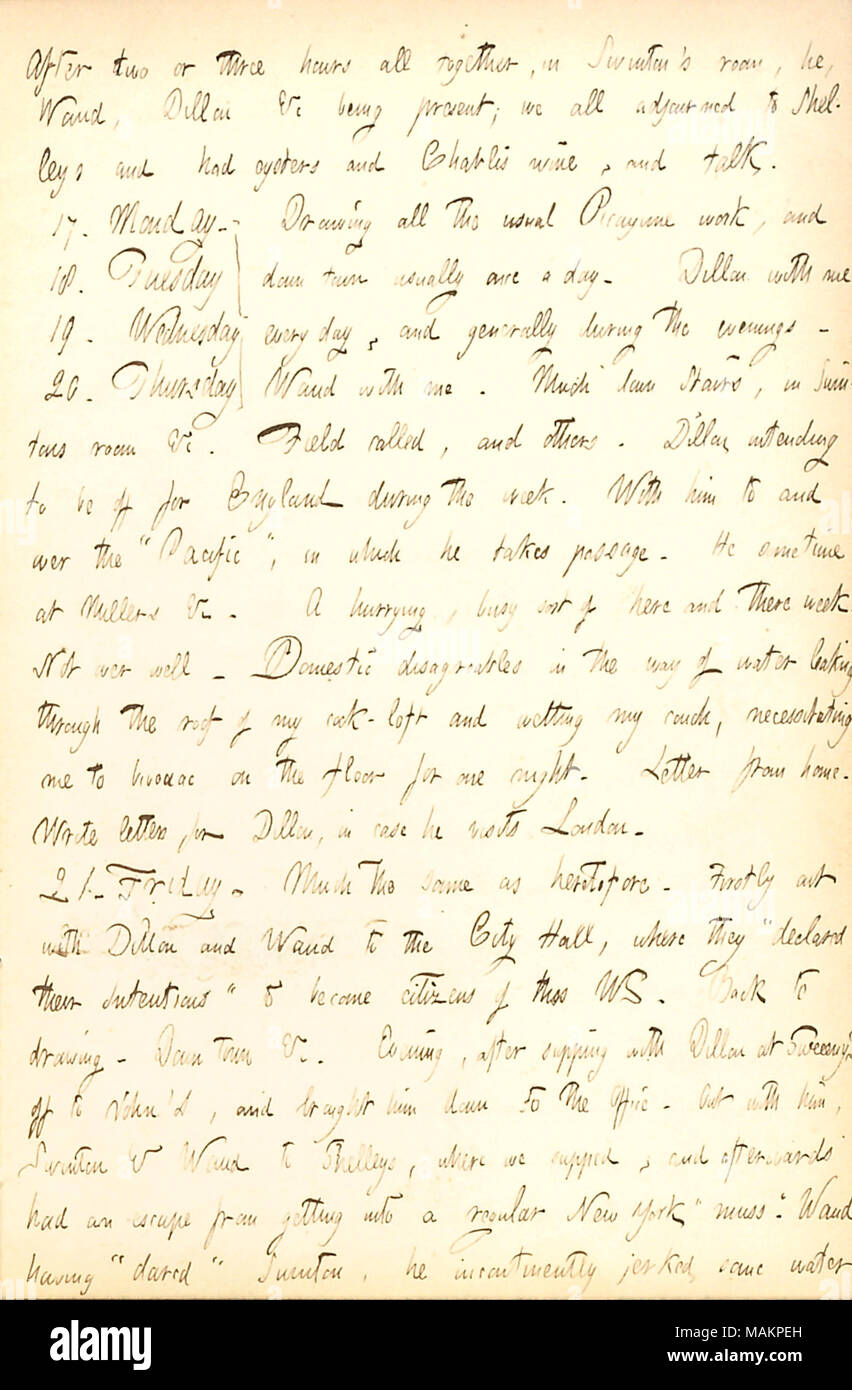 After two or three hours all together, in Swinton's room, he,
Waud, Dillon &c being present; we all adjourned to Shel-
leys and had oysters and Chablis wine, and talk.
17. Monday. Drawing all the usual Picayune work, and
18. Tuesday down town usually once a day. Dillon with me
19. Wednesday every day, and generally during the evenings.
20. Thursday Waud with me. Much down stairs, in Swin-
tons room &c. Field called, and others. Dillon intending
to be off for England during the week. With him to and
over the "Pacific", in which he takes passage. He sometime
at Millers &c. A hurrying, busy sort of here and there week
Not over well. Domestic disagreeables in the way of water leaking
through the roof of my cock-loft and wetting my couch, necessitating
me to bivouac on the floor for one night. Letter from home.
Write letters, for Dillon, in case he visits London.
21. Friday. Much the same as heretofore. Firstly out
with Dillon and Waud to the City Hall, where they "declared
their intentions" to become citizens of this US. Back to
drawing. Down town &c. Evening, after supping with Dillon at Sweeny's
off to John's, and brought him down to the office. Out with him,
Swinton & Waud to Shelleys, where we supped, and afterwards
had an escape from getting into a regular New York "muss". Waud
having "dared" Swinton, he incontinently jerked some water
alamy
Image ID: MAKPEH
www.alamy.com